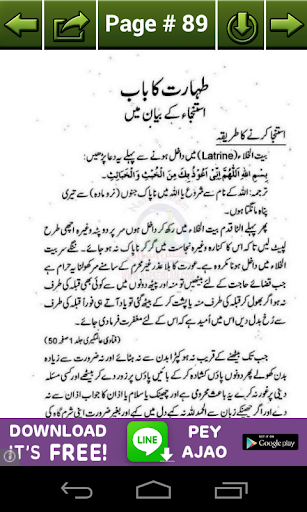 Page # 89
طہارت کا باب
استنجاء کے بیان میں
استنجا کرنے کا طریقہ
بیت الخلاء (Latrine) میں داخل ہونے سے پہلے یہ دعا پڑھیں:
بِسْمِ اللّٰهِ اَللّٰهُمَّ اِنِّیْ اَعُوْذُ بِكَ مِنَ الْخُبُثِ وَالْخَبَائِثِ.
ترجمہ: اللہ کے نام سے شروع یا اللہ میں ناپاک جنوں (نر و مادہ) سے تیری
پناہ مانگتا ہوں۔
پھر پہلے الٹا قدم بیت الخلاء میں رکھ کر داخل ہوں سر پر دوپٹہ وغیرہ اچھی طرح
لپیٹ لیں تاکہ اس کا کنارہ وغیرہ نجاست میں گر کر ناپاک نہ ہو جائے۔ ننگے سر بیت
الخلاء میں داخل ہونا مکروہ ہے۔ عورت کا بلا عذر غیر محرم کے سامنے سر کھولنا یہ حرام ہے
جب قضائے حاجت کے لئے بیٹھیں تو منہ اور پیٹھ دونوں میں سے کوئی بھی قبلہ کی طرف
نہ ہو اگر بھول کر قبلہ کی طرف منہ یا پشت کر کے بیٹھ گئی تو یاد آتے ہی فوراً قبلہ کی طرف
سے رخ بدل دیں اس میں امید ہے کہ اس کے لئے مغفرت فرما دی جائے۔
(فتاویٰ عالمگیری جلد ۱ صفحہ 50)
جب تک بیٹھنے کے قریب نہ ہو کپڑا بدن سے نہ ہٹائیں اور نہ ضرورت سے زیادہ
بدن کھولے پھر دونوں پاؤں کشادہ کر کے بائیں پاؤں پر زور دے کر بیٹھے اور کسی مسئلہ
دینی پر غور نہ کرے کہ یہ باعث محرومی ہے اور چھینک یا سلام یا اذان کا جواب زبان سے نہ
دے اور اگر چھینکے زبان سے الحمد للہ نہ کہے دل میں کہہ لے اور بغیر ضرورت اپنی شرم گاہ کی
DOWNLOAD
IT'S FREE!
LINE
PEY
AJAO
GET IT ON
Google play